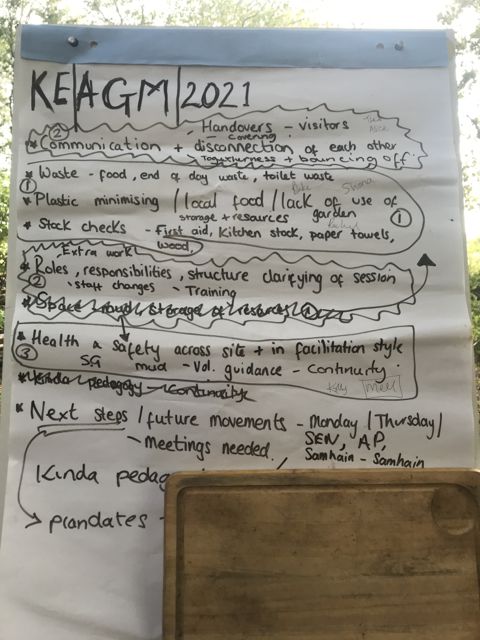 KE AGM 2021
Handovers - visitors
② covering
* Communication + disconnection of each other
Togetherness + bouncing off.
* Waste - food, end of day waste, toilet waste
①
* Plastic minimising / local food / lack of use of garden
storage + resources ①
* Stock checks - First aid, kitchen stock, paper towels,
wood,
Extra work
* Roles, responsibilities, structure clarifying of session
② staff changes - Training
* Health & safety across site + in facilitation style
③ mud - Vol. guidance - continuity
* Kinda pedagogy - continuity
* Next steps / future movements - Monday / Thursday /
- meetings needed. SEN, AP,
Samhain - Samhain
Kinda